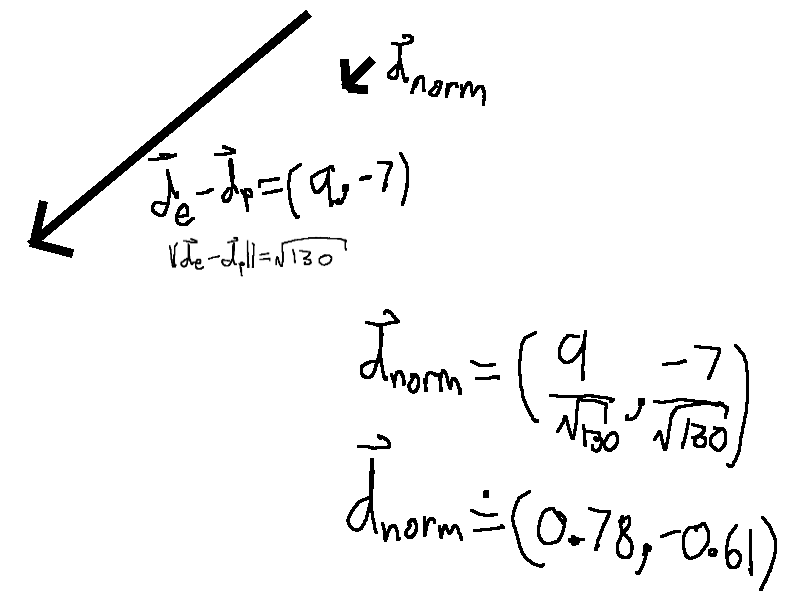 d⃗norm
d⃗e - d⃗p = (9, -7)
||d⃗e - d⃗p|| = √130
d⃗norm = (9/√130, -7/√130)
d⃗norm ≐ (0.78, -0.61)